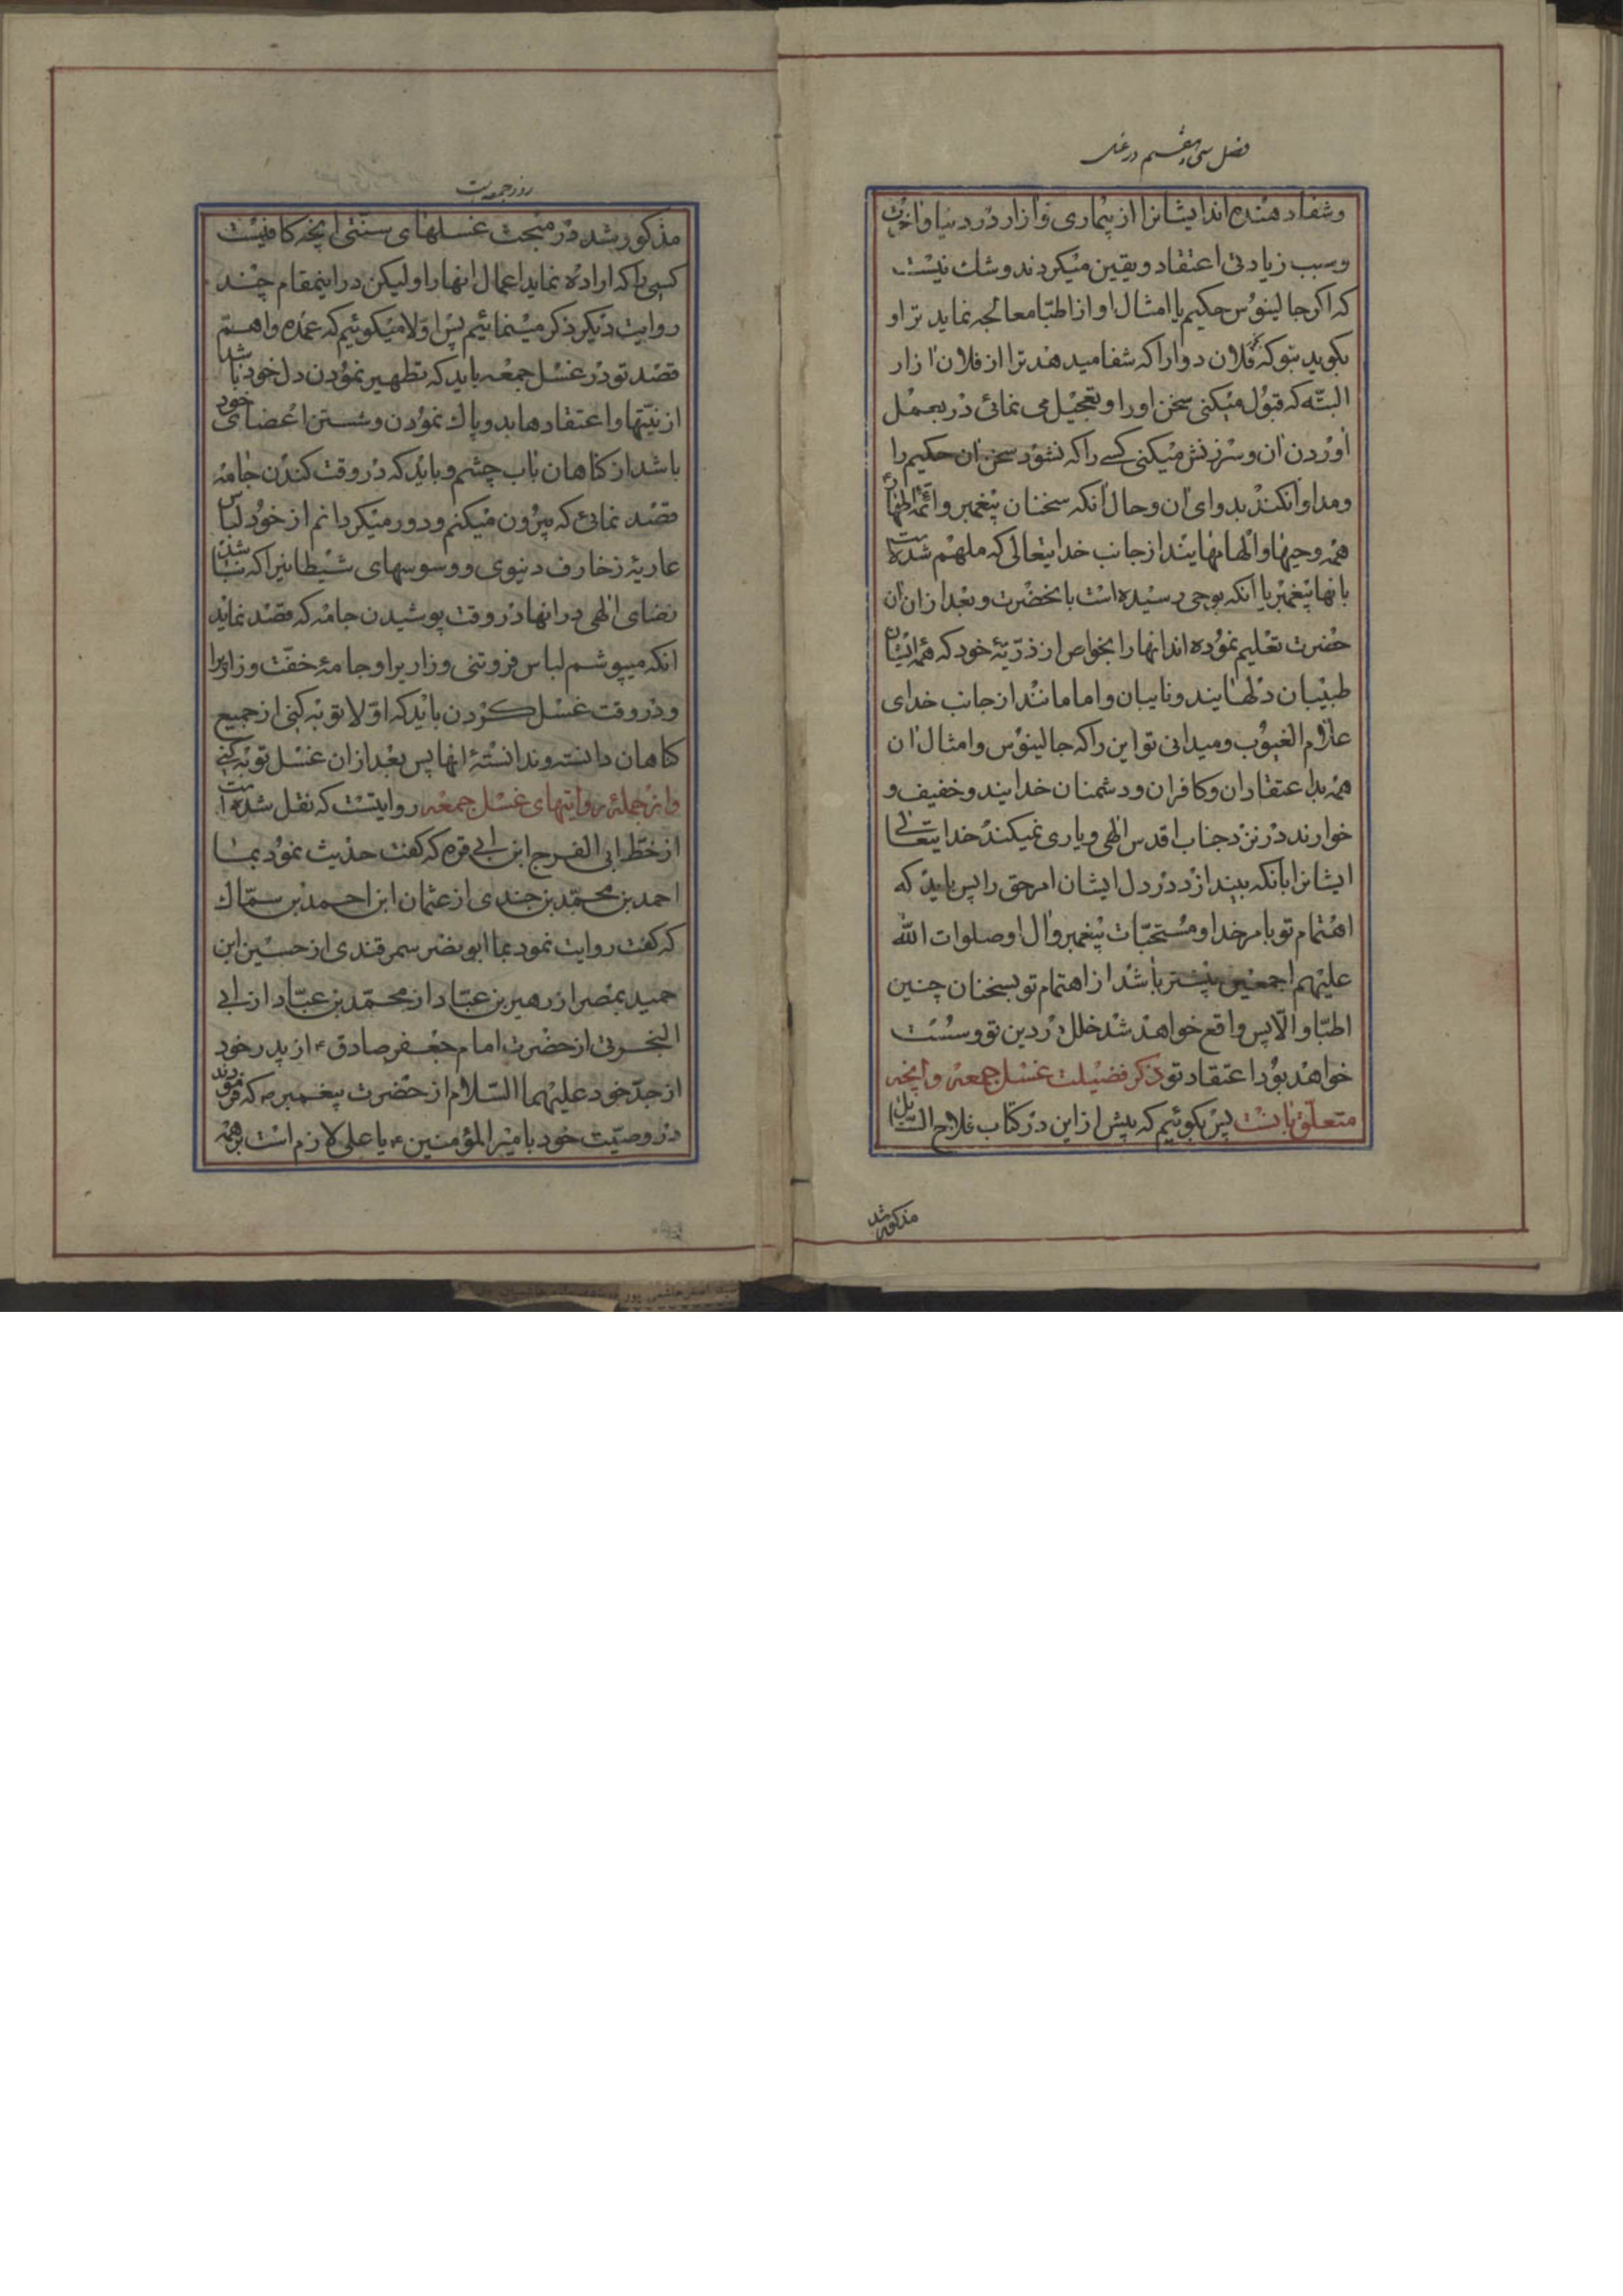 فصل سی و هفتم در غسل
وشفا دهنده اند ایشانرا از بیماری و ازار در دنیا و اخرت
وسبب زیادتی اعتقاد و یقین میکردند و شك نیست
که اکر جالینوس حکیم یا امثال او از اطبّا معالجه نماید ترا و
بکوید بتو که فلان دوا را که شفا میدهد ترا از فلان ازار
البتّه که قبول میکنی سخن او را و تعجیل می نمائی در بعمل
اوردن ان و سرزنش میکنی کسے را که نشنود سخن ان حکیم را
ومداوا نکند بدوای ان و حال انکه سخنان پیغمبر و ائمّه اطهار
همه وحیها و الهامهایند از جانب خدایتعالی که ملهم شده است
بانها پیغمبر یا انکه بوحی رسیده است بانحضرت و بعد از ان ان
حضرت تعلیم نموده اند انها را بخواص از ذرّیّهٔ خود که همه ایشان
طبیبان دلهایند و نایبان و امامانند از جانب خدای
علام الغیوب و میدانی تو این را که جالینوس و امثال ان
همه بد اعتقادان و کافران و دشمنان خدایند و خفیف و
خوارند در نزد جناب اقدس الهی و یاری نمیکند خدایتعالی
ایشانرا بانکه بیندازد در دل ایشان امر حق را پس باید که
اهتمام تو بامر خدا و مستحبّات پیغمبر و ال او صلوات الله
علیهم اجمعین بیشتر باشد از اهتمام تو بسخنان چنین
اطبّا و الّا پس واقع خواهد شد خلل در دین تو و سست
خواهد بود اعتقاد تو ذکر فضیلت غسل جمعه و انچه
متعلّق بانست پس بکوئیم که پیش از این در کتاب فلاح السّایل
مذکور شد
روز جمعه است
مذکور شد در مبحث غسلهای سنّتی انچه کافیست
کسی را که اراده نماید اعمال انها را ولیکن در اینمقام چند
روایت دیکر ذکر مینمائیم پس اوّلا میکوئیم که عمده و اهمّ
قصد تو در غسل جمعه باید که تطهیر نمودن دل خود باشد
از نیّتها و اعتقادها بد و پاك نمودن و شستن اعضای خود
باشد از کناهان باب چشم و باید که در وقت کندن جامه
قصد نمائی که بیرون میکنم و دور میکردانم از خود لباس
عاریهٔ زخارف دنیوی و وسوسهای شیطانیرا که نباشد
رضای الهی در انها و در وقت پوشیدن جامه که قصد نماید
انکه میپوشم لباس فروتنی و زاریرا و جامهٔ خفّت و زاریرا
و در وقت غسل کردن باید که اوّلا توبه کنی از جمیع
کناهان دانسته و ندانستهٔ انها پس بعد از ان غسل توبه کنے
و از جملهٔ روایتهای غسل جمعه روایتست که نقل شده است
از خطّ ابی الفرج ابن ابی قره که کفت حدیث نمود بما
احمد بن محمّد بن جندی از عثمان ابن احمد بن سمّاك
که کفت روایت نمود بما ابو نضر سمرقندی از حسین ابن
حمید بمصر از زهیر بن عبّاد از محمّد بن عبّاد از ابی
البختری از حضرت امام جعفر صادق ع از پدر خود
از جدّ خود علیهما السّلام از حضرت پیغمبر ص که فرمودند
در وصیّت خود بامیر المؤمنین ع یا علی لازم است بر همه